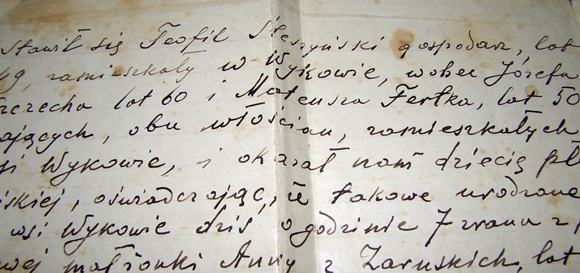 Stawił się Teofil Śleszyński gospodarz, lat
49, zamieszkały w Wykowie, wobec Józefa
lat 60 i Mateusza Fertka, lat 50
ających, obu włościan, zamieszkałych
si Wykowie, i okazał nam dziecię pł
skiej, oświadczając, iż takowe urodzone
wsi Wykowie dziś o godzinie 7 zrana z,
wej małżonki Anny z Zaruskich, lat